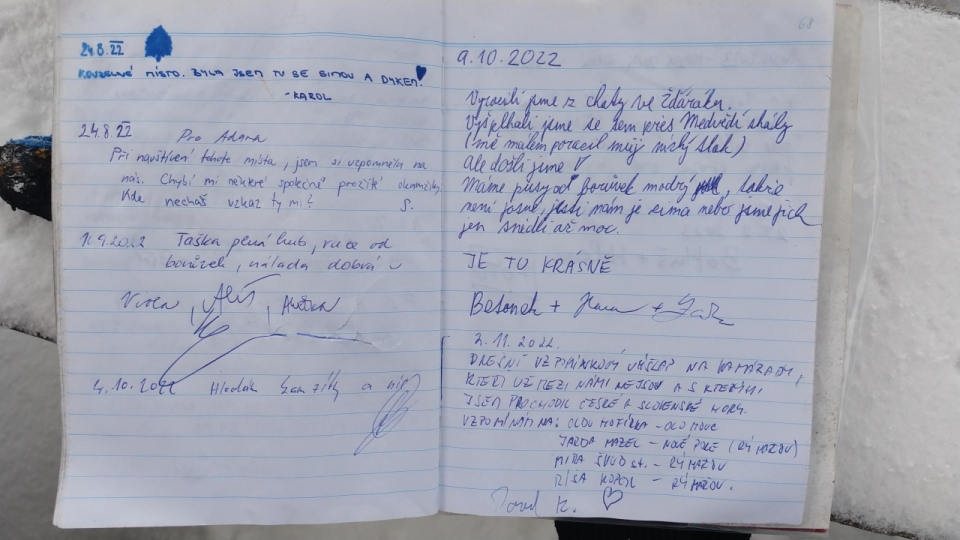 24.8.22
KOUZELNÉ MÍSTO. BYLA JSEM TU SE SIMOU A DYKEM!
-KAROL
24.8.22 Pro Adama
Při navštívení tohoto místa, jsem si vzpomněla na
nás. Chybí mi některé společně prožité okamžiky.
Kde necháš vzkaz ty mi? S.
1.9.2022 Taška plná hub, ruce od
borůvek, nálada dobrá
, Aleš,
4.10.2022 Hledák a nic
68
9.10.2022
Vyrazili jsme z chaty ve Žďáráku.
Vyšplhali jsme se sem přes Medvědí skály
(mě málem porazil můj nízký tlak)
Ale došli jsme
Máme pusy od borůvek modrý, takže
není jasné, jestli nám je zima nebo jsme jich
jen snědli až moc.
JE TU KRÁSNĚ
Betonek + Hana +
2.11.2022.
DNEŠNÍ VZPOMÍNKOVÝ VÝŠLAP NA KAMARÁDY,
KTEŘÍ UŽ MEZI NÁMI NEJSOU A S KTERÝMI
JSEM PROCHODIL ČESKÉ A SLOVENSKÉ HORY.
VZPOMÍNÁM NA: - OLOMOUC
JARDA - NOVÉ POLE (RÝMAŘOV)
MÍRA st. - RÝMAŘOV
RÍŠA - RÝMAŘOV.
K.